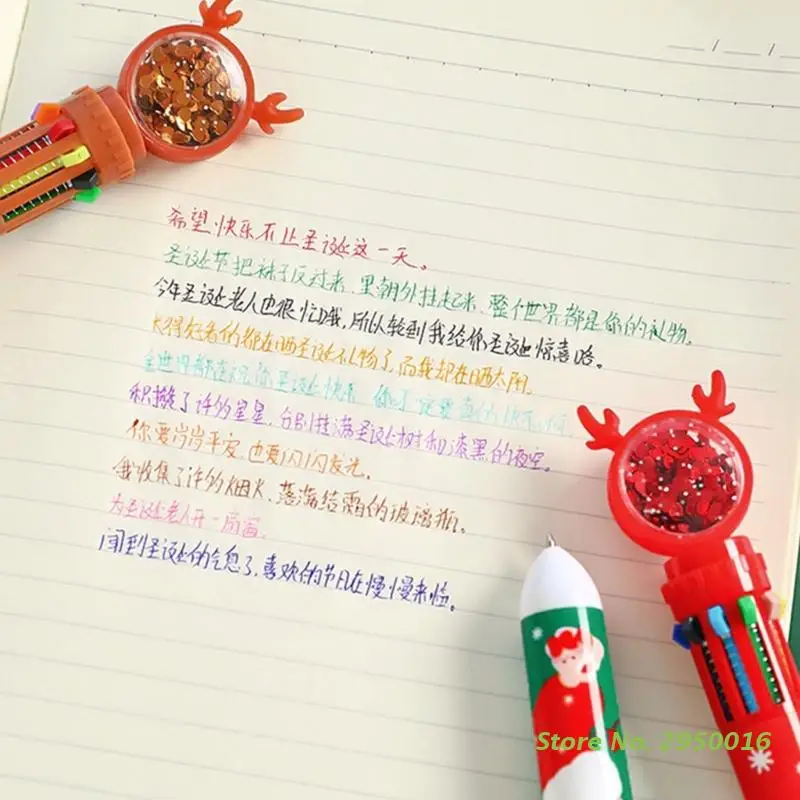 希望快乐不止圣诞这一天。
圣诞节把袜子反过来、里朝外挂起来、整个世界都是你的礼物。
今年圣诞老人也很忙哦,所以轮到我给你圣诞惊喜咯。
长得好看的都在晒圣诞礼物了,而我却在晒太阳.
全世界都在祝你圣诞快乐
积攒了许多星星,分别挂满圣诞树和漆黑的夜空。
你要岁岁平安,也要闪闪发光。
我收集了许多烟火,落满结霜的玻璃瓶。
为圣诞老人开一扇窗.
闻到圣诞的气息了,喜欢的节日在慢慢来临。
Store No. 2950016